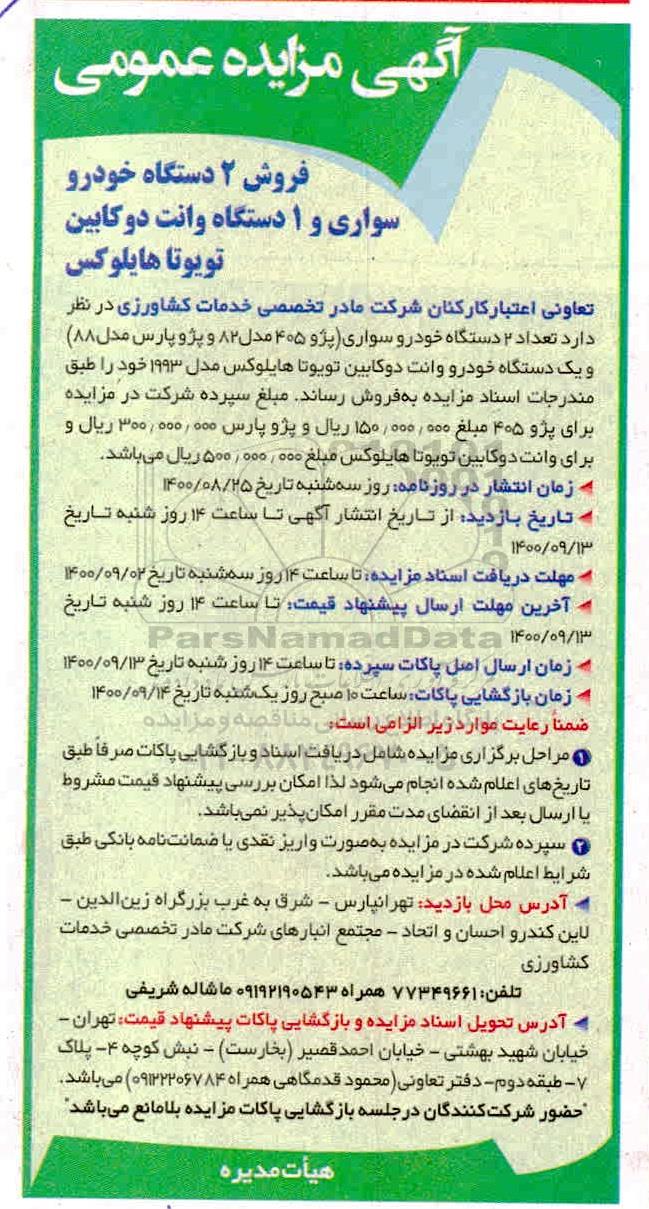 آگهی مزایده عمومی
فروش ۲ دستگاه خودرو
سواری و ۱ دستگاه وانت دوکابین
تویوتا هایلوکس
تعاونی اعتبار کارکنان شرکت مادر تخصصی خدمات کشاورزی در نظر
دارد تعداد ۲ دستگاه خودرو سواری(پژو ۴۰۵ مدل۸۲ و پژو پارس مدل۸۸)
و یک دستگاه خودرو وانت دوکابین تویوتا هایلوکس مدل ۱۹۹۳ خود را طبق
مندرجات اسناد مزایده به‌فروش رساند. مبلغ سپرده شرکت در مزایده
برای پژو ۴۰۵ مبلغ ۱۵۰٫۰۰۰٫۰۰۰ ریال و پژو پارس ۳۰۰٫۰۰۰٫۰۰۰ ریال و
برای وانت دوکابین تویوتا هایلوکس مبلغ ۵۰۰٫۰۰۰٫۰۰۰ ریال می‌باشد.
زمان انتشار در روزنامه: روز سه‌شنبه تاریخ ۱۴۰۰/۰۸/۲۵
تاریخ بازدید: از تاریخ انتشار آگهی تا ساعت ۱۴ روز شنبه تاریخ
۱۴۰۰/۰۹/۱۳
مهلت دریافت اسناد مزایده: تا ساعت ۱۴ روز سه‌شنبه تاریخ ۱۴۰۰/۰۹/۰۲
آخرین مهلت ارسال پیشنهاد قیمت: تا ساعت ۱۴ روز شنبه تاریخ
۱۴۰۰/۰۹/۱۳
ParsNamadData
زمان ارسال اصل پاکات سپرده: تا ساعت ۱۴ روز شنبه تاریخ ۱۴۰۰/۰۹/۱۳
زمان بازگشایی پاکات: ساعت ۱۰ صبح روز یک‌شنبه تاریخ ۱۴۰۰/۰۹/۱۴
ضمناً رعایت موارد زیر الزامی است:
۱ مراحل برگزاری مزایده شامل دریافت اسناد و بازگشایی پاکات صرفاً طبق
تاریخ‌های اعلام شده انجام می‌شود لذا امکان بررسی پیشنهاد قیمت مشروط
یا ارسال بعد از انقضای مدت مقرر امکان‌پذیر نمی‌باشد.
۲ سپرده شرکت در مزایده به‌صورت واریز نقدی یا ضمانت‌نامه بانکی طبق
شرایط اعلام شده در مزایده می‌باشد.
آدرس محل بازدید: تهرانپارس - شرق به غرب بزرگراه زین‌الدین -
لاین کندرو احسان و اتحاد - مجتمع انبارهای شرکت مادر تخصصی خدمات
کشاورزی
تلفن: ۷۷۳۴۹۶۶۱ همراه ۰۹۱۹۲۱۹۰۵۴۳ ماشاله شریفی
آدرس تحویل اسناد مزایده و بازگشایی پاکات پیشنهاد قیمت: تهران -
خیابان شهید بهشتی - خیابان احمدقصیر (بخارست) - نبش کوچه ۴- پلاک
۷- طبقه دوم- دفتر تعاونی(محمود قدمگاهی همراه ۰۹۱۲۲۲۰۶۷۸۴) می‌باشد.
"حضور شرکت‌کنندگان در جلسه بازگشایی پاکات مزایده بلامانع می‌باشد"
هیأت مدیره